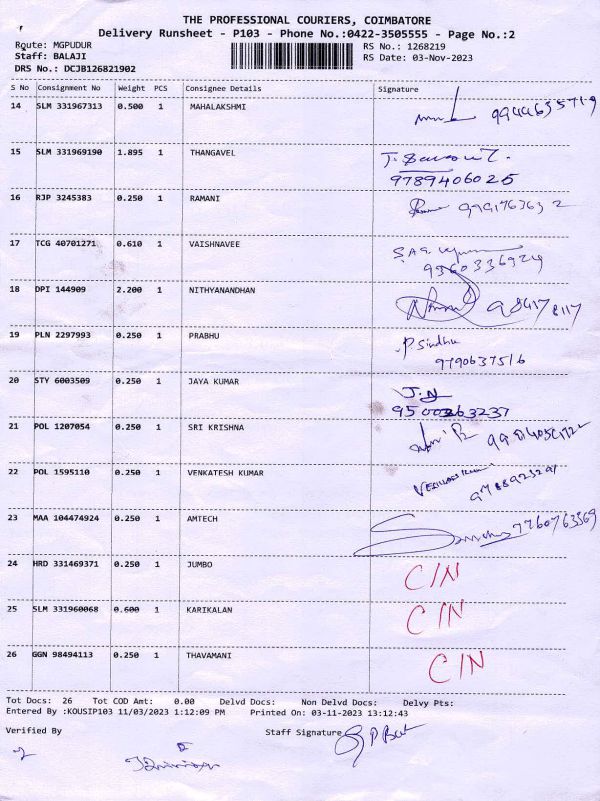 THE PROFESSIONAL COURIERS, COIMBATORE
Delivery Runsheet - P103 - Phone No.:0422-3505555 - Page No.:2
Route: MGPUDUR RS No.: 1268219
Staff: BALAJI RS Date: 03-Nov-2023
DRS No.: DCJB126821902
S No Consignment No Weight PCS Consignee Details Signature
14 SLM 331967313 0.500 1 MAHALAKSHMI
15 SLM 331969190 1.895 1 THANGAVEL
9789406025
16 RJP 3245383 0.250 1 RAMANI
17 TCG 40701271 0.610 1 VAISHNAVEE
9360336924
18 DPI 144909 2.200 1 NITHYANANDHAN
19 PLN 2297993 0.250 1 PRABHU
P Sindhu
9790637516
20 STY 6003509 0.250 1 JAYA KUMAR
9500263237
21 POL 1207054 0.250 1 SRI KRISHNA
22 POL 1595110 0.250 1 VENKATESH KUMAR
23 MAA 104474924 0.250 1 AMTECH
24 HRD 331469371 0.250 1 JUMBO C/N
25 SLM 331960068 0.600 1 KARIKALAN C/N
26 GGN 98494113 0.250 1 THAVAMANI C/N
Tot Docs: 26 Tot COD Amt: 0.00 Delvd Docs: Non Delvd Docs: Delvy Pts:
Entered By :KOUSIP103 11/03/2023 1:12:09 PM Printed On: 03-11-2023 13:12:43
Verified By Staff Signature